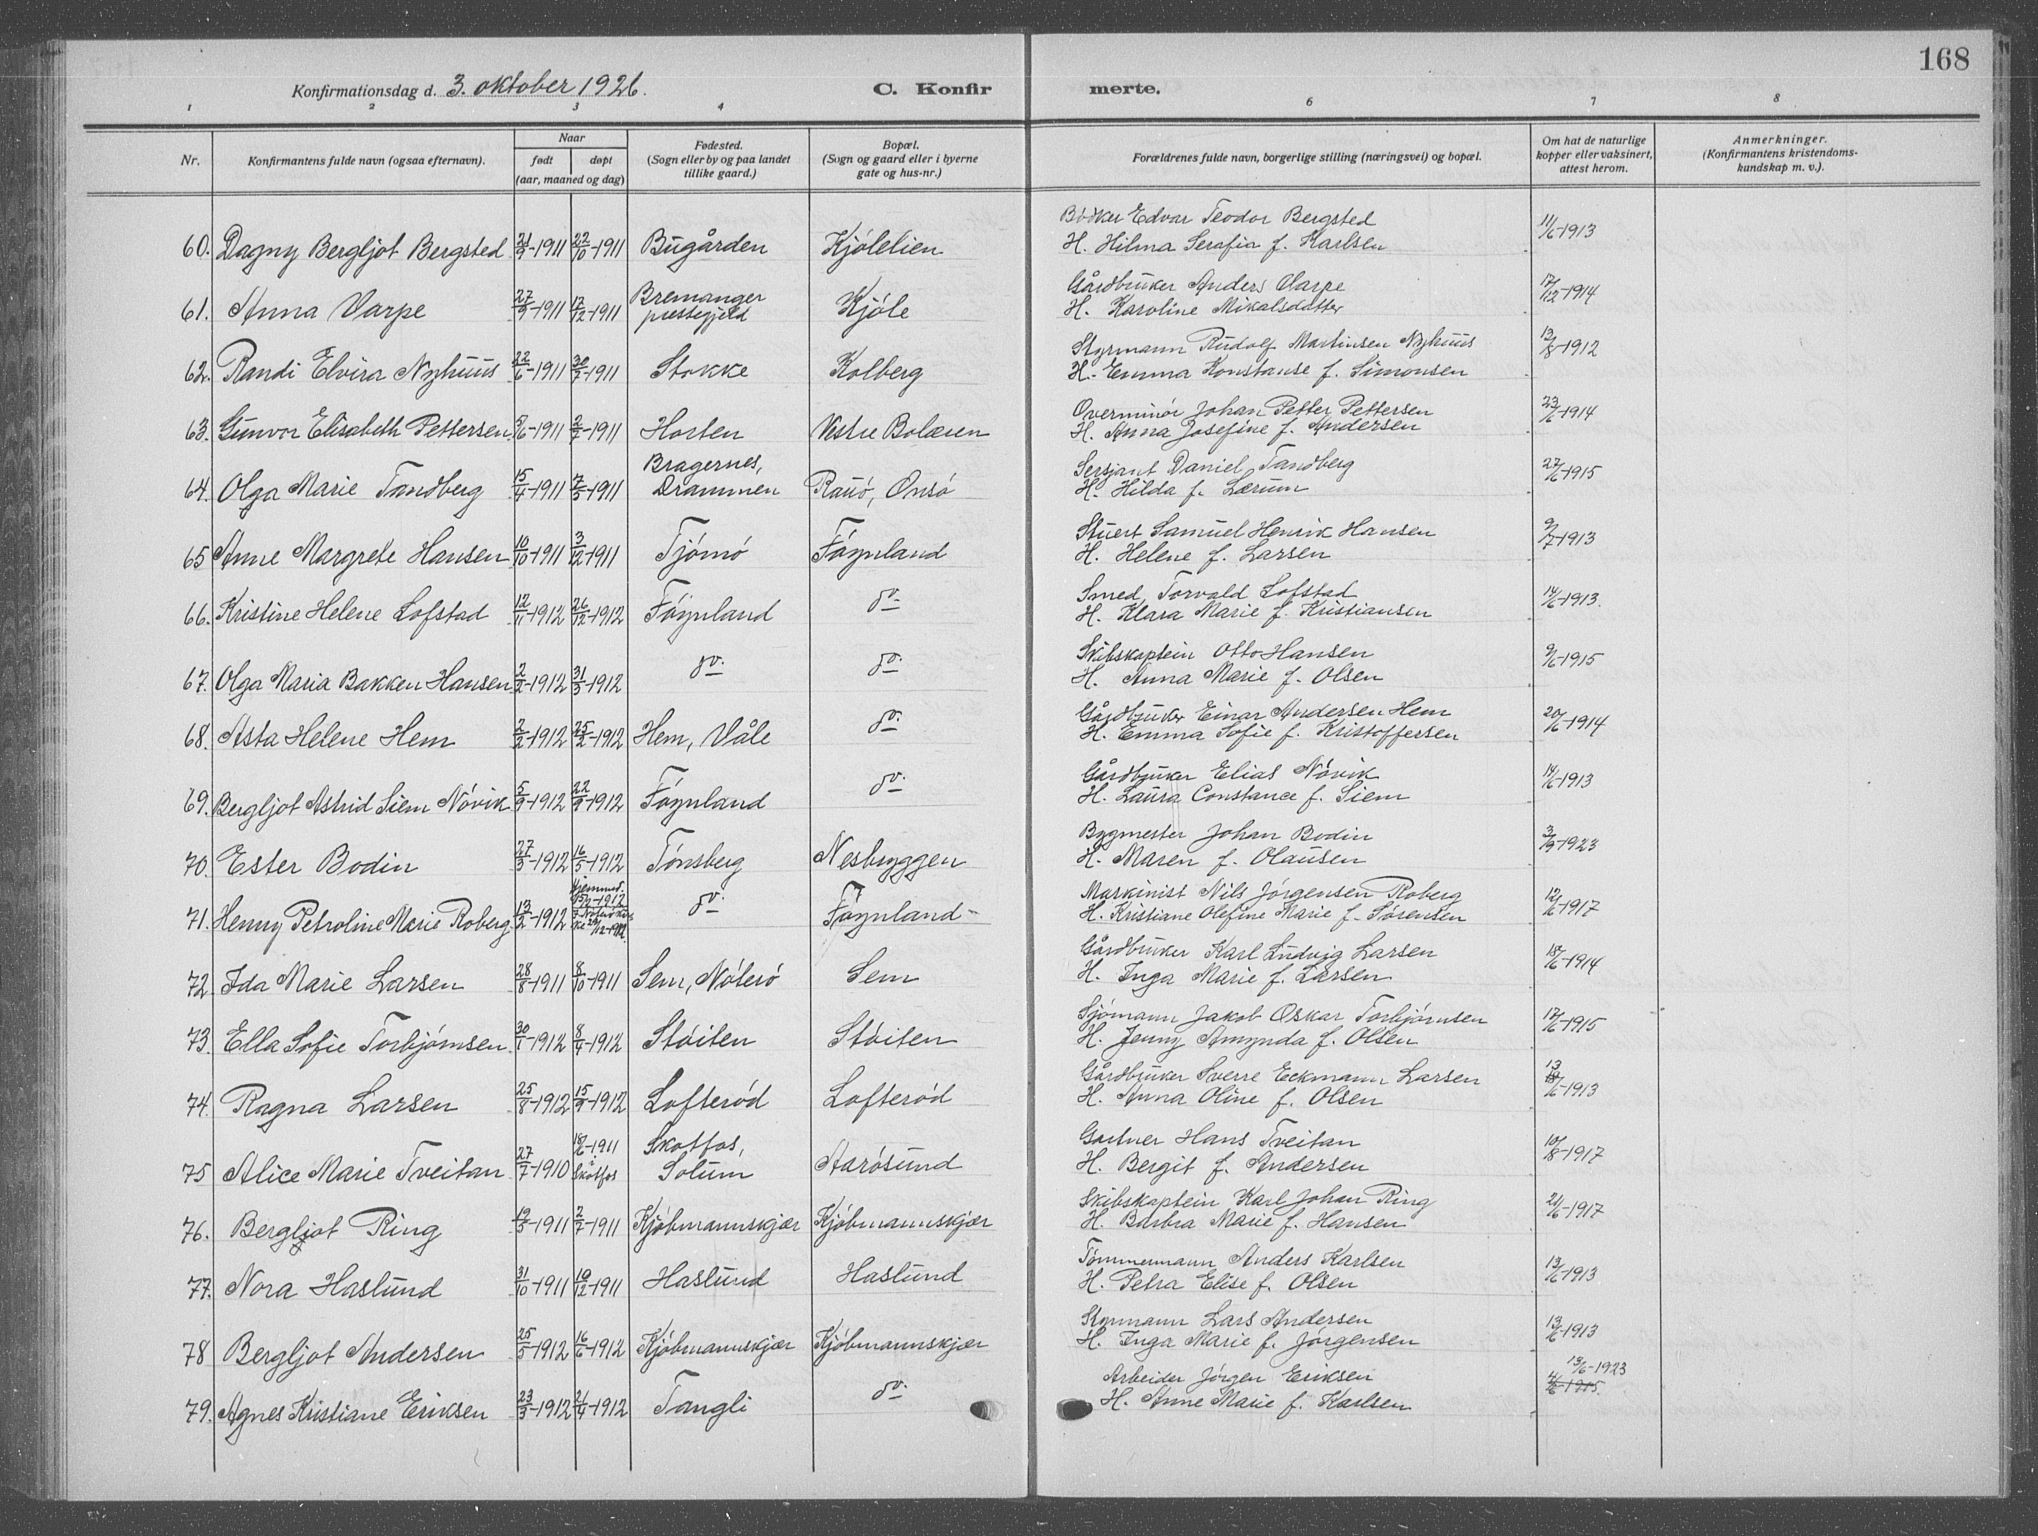 168
Konfirmationsdag d. 3. oktober 1926.
C. Konfirmerte.
1 2 3 4 6 7 8
Nr. Konfirmantens fulde navn (ogsaa efternavn). Naar født døpt (aar, maaned og dag) Fødested. (Sogn eller by og paa landet tillike gaard.) Bopæl. (Sogn og gaard eller i byerne gate og hus-nr.) Forældrenes fulde navn, borgerlige stilling (næringsvei) og bopæl. Om hat de naturlige kopper eller vaksinert, attest herom. Anmerkninger. (Konfirmantens kristendoms-kundskap m. v.).
60. Dagny Bergljot Bergsted 21/9-1911 22/10-1911 Bugården Kjølelien Edvar Teodor Bergsted 11/6-1913
H. Hilma Serafia f. Karlsen
61. Anna Varpe 27/9-1911 17/12-1911 Bremanger prestegjeld Kjøle Gårdbruker Anders Varpe 17/12-1914
H. Karoline Mikalsdatter
62. Randi Elvira Nyhuus 22/6-1911 30/7-1911 Stokke Kolberg Styrmann Rudolf Martinsen Nyhuus 13/8-1912
H. Emma Konstanse f. Simonsen
63. Gunvor Elisabeth Pettersen 5/6-1911 2/7-1911 Horten Vestre Bolæren Overminør Johan Petter Pettersen 23/6-1914
H. Anna Josefine f. Andersen
64. Olga Marie Tandberg 15/4-1911 7/5-1911 Bragernes, Drammen Rauø, Onsø Sersjant Daniel Tandberg 27/6-1915
H. Hilda f. Lærum
65 Anne Margrete Hansen 10/10-1911 3/12-1911 Tjømø Føynland Stuert Samuel Henrik Hansen 9/7-1913
H. Helene f. Larsen
66. Kristine Helene Lofstad 12/11-1912 26/12-1912 Føynland do. Smed Torvald Lofstad 14/6-1913.
H. Klara Marie f. Kristiansen
67. Olga Maria Bakken Hansen 2/2-1912 31/3-1912 do. do. Skibskaptein Otto Hansen 9/6-1915
H. Anna Marie f. Olsen
68. Asta Helene Hem 2/2-1912 25/2-1912 Hem, Våle do. Gårdbruker Einar Andersen Hem 20/6-1914
H. Emma Sofie f. Kristoffersen
69. Bergljot Astrid Siem Nøvik 5/9-1912 22/9-1912 Føynland do. Gårdbruker Elias Nøvik 14/6-1913
H. Laura Constance f. Siem
70. Ester Bodin 27/3-1912 16/5-1912 Tønsberg Nesbryggen Bygmester Johan Bodin 3/9-1923
H. Maren f. Olausen
71. Henny Petroline Marie Roberg 13/2-1912 Hjemmed. do. Føynland Maskinist Nils Jørgensen Roberg 12/6-1917
H. Kristiane Olefine Marie f. Sørensen
72. Ida Marie Larsen 28/8-1911 8/10-1911 Sem, Nøterø Sem Gårdbruker Karl Ludvig Larsen 18/6-1914
H. Inga Marie f. Larsen
73. Ella Sofie Torbjørnsen 30/1-1912 8/4-1912 Støiten Støiten Sjømann Jakob Oskar Torbjørnsen 17/6-1915
H. Jenny Amynda f. Olsen
74. Ragna Larsen 25/8-1912 15/9-1912 Lofterød Lofterød Gårdbruker Sverre Eckmann Larsen 13/6-1913
H. Anna Oline f. Olsen
75 Alice Marie Tveitan 27/7-1910 18/6-1911 i Skotfos Skotfos, Solum Aarøsund Gartner Hans Tveitan 10/8-1917
H. Bergit f. Andersen
76. Bergljot Ring 19/5-1911 2/7-1911 Kjøbmannskjær Kjøbmannskjær Skibskaptein Karl Johan Ring 21/6-1917
H. Barbra Marie f. Hansen
77. Nora Haslund 31/10-1911 10/12-1911 Haslund Haslund Tømmermann Anders Karlsen 13/6-1913
H. Petra Elise f. Olsen
78 Bergljot Andersen 25/5-1912 16/6-1912 Kjøbmannskjær Kjøbmannskjær Styrmann Lars Andersen 13/6-1913
H. Inga Marie f. Jørgensen
79. Agnes Kristiane Eriksen 23/3-1912 21/4-1912 Tangli do. Arbeider Jørgen Eriksen 13/6-1923
H. Anne Marie f. Karlsen